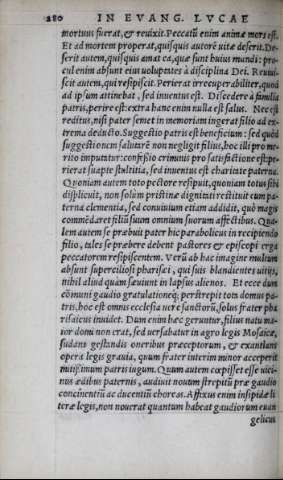 280 IN EVANG. LVCAE
mortuus fuerat, & reuixit. Peccatũ enim animæ mors est.
Et ad mortem properat, quisquis autorẽ uitæ deserit. De-
serit autem, quisquis amat ea, quæ sunt huius mundi: pro-
cul enim absunt eius uoluptates à disciplina Dei. Reuiui-
scit autem, qui resipiscit. Perierat irrecuperabiliter, quod
ad ipsum attinebat, sed inuentus est. Discedere à familia
patris, perire est: extra hanc enim nulla est salus. Nec est
reditus, nisi pater semet in memoriam ingerat filio ad ex-
trema deducto. Suggestio patris est beneficium: sed quòd
suggestionem salutarẽ non negligit filius, hoc illi pro me-
rito imputatur: confessio criminis pro satisfactione est: pe-
rierat suapte stultitia, sed inuentus est charitate paterna.
Quoniam autem toto pectore resipuit, quoniam totus sibi
displicuit, non solùm pristinæ dignitati restituit eum pa-
terna clementia, sed conuiuium etiam addidit, quò magis
commẽdaret filiũ suum omnium suorum affectibus. Qua-
lem autem se præbuit pater hic parabolicus in recipiendo
filio, tales se præbere debent pastores & episcopi erga
peccatorem resipiscentem. Verũ ab hac imagine multum
absunt superciliosi pharisæi, qui suis blandientes uitijs,
nihil aliud quàm sæuiunt in lapsus alienos. Et ecce dum
cõmuni gaudio gratulationeq; perstrepit tota domus pa-
tris, hoc est omnis ecclesia uere sanctorũ, solus frater pha
risaicus inuidet. Dum enim hæc geruntur, filius natu ma-
ior domi non erat, sed uersabatur in agro legis Mosaicæ,
sudans gestandis oneribus præceptorum, & exantlans
opera legis grauia, quum frater interim minor acceperit
mitissimum patris iugum. Quum autem cœpisset esse uici-
nus ædibus paternis, audiuit nouum strepitũ præ gaudio
concinentiũ ac ducentiũ choreas. Affixus enim insipidæ li
teræ legis, non nouerat quantum habeat gaudiorum euan
gelicus